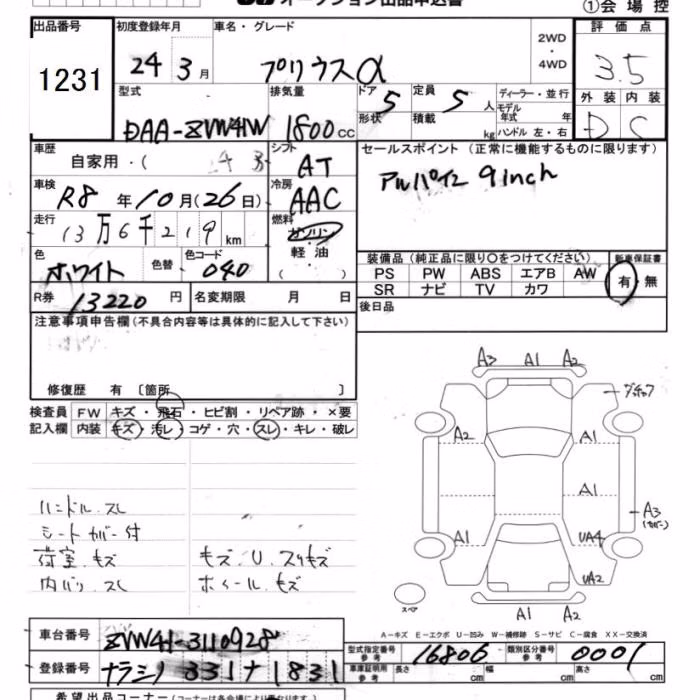 オークション出品申込書 ①会場控
出品番号 初度登録年月 車名・グレード 評価点
1231 24年3月 プリウスα 2WD・4WD 3.5
型式 排気量 ドア 5 定員 5人 ディーラー・並行 外装 内装
モデル年式 年
DAA-ZVW41W 1800cc 形状 積載 kg ハンドル 左・右 D C
車歴 シフト セールスポイント(正常に機能するものに限ります)
自家用・( AT アルパイン 9inch
車検 冷房
R8年10月(26日) AAC
走行 燃料
13万6千219km ガソリン
色 色替 色コード 軽・油 装備品(純正品に限り○をつけてください) 新車保証書
ホワイト 040 ( ) PS PW ABS エアB AW 有・無
SR ナビ TV カワ
R券 13220円 名変期限 月 日 後日品
注意事項申告欄(不具合内容等は具体的に記入して下さい)
修復歴 有 〔箇所 〕
検査員 FW キズ・飛石・ヒビ割・リペア跡・×要
記入欄 内装 キズ・汚レ・コゲ・穴・スレ・キレ・破レ
A3 A1 A2
A2 A1
A1
A3
A1 UA4
UA2
スペア
A1 A2
ハンドル.スレ
シートカバー付
荷室.キズ キズ.U.スリキズ
内バリ.スレ ホイール.キズ
A-キズ E-エクボ U-凹み W-補修跡 S-サビ C-腐食 XX-交換済
車台番号 ZVW41-3110928
型式指定番号 参考 16806 類別区分番号 参考 0001
登録番号 ナラシノ 331ナ1831
車庫証明用 参考 長さ cm 幅 cm 高さ cm
希望出品コーナー